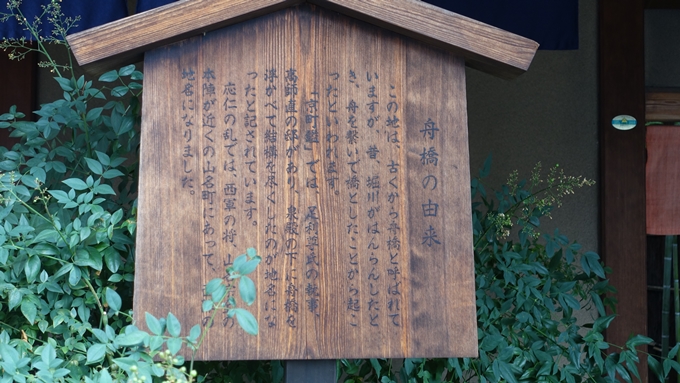 舟橋の由来
この地は、古くから舟橋と呼ばれて
いますが、昔、堀川がはんらんしたと
き、舟を繋いで橋としたことから起こ
ったといわれます。
「京町鑑」では、足利尊氏の執事、
高師直の邸があり、泉殿の下に舟橋を
浮かべて結構を尽くしたのが地名にな
ったと記されています。
応仁の乱では、西軍の将、山
の
本陣が近くの山名町にあって、
の
地名になりました。